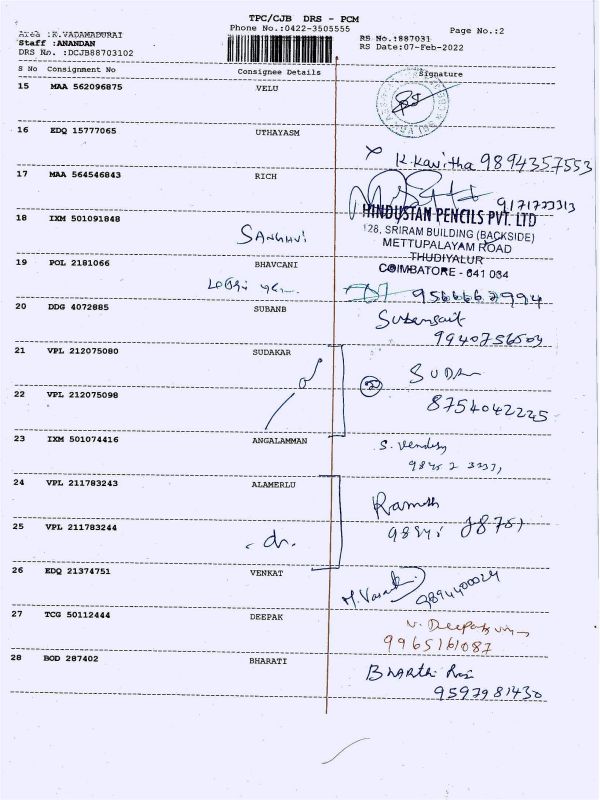 TPC/CJB DRS - PCM
Area :K.VADAMADURAI
Phone No.:0422-3505555
Page No.:2
Staff :ANANDAN
RS No.:887031
DRS No. :DCJB88703102
RS Date:07-Feb-2022
S No Consignment No Consignee Details Signature
15 MAA 562096875 VELU
16 EDQ 15777065 UTHAYASM
K.Kavitha 9894357553
17 MAA 564546843 RICH
HINDUSTAN PENCILS PVT. LTD
18 IXM 501091848
128, SRIRAM BUILDING (BACKSIDE)
METTUPALAYAM ROAD
THUDIYALUR
19 POL 2181066 BHAVCANI
COIMBATORE - 641 034
20 DDG 4072885 SUBANB
21 VPL 212075080 SUDAKAR
22 VPL 212075098
8754042225
23 IXM 501074416 ANGALAMMAN
24 VPL 211783243 ALAMERLU
Ramesh
25 VPL 211783244
26 EDQ 21374751 VENKAT
9894400024
27 TCG 50112444 DEEPAK
9965161087
28 BOD 287402 BHARATI
9597981430